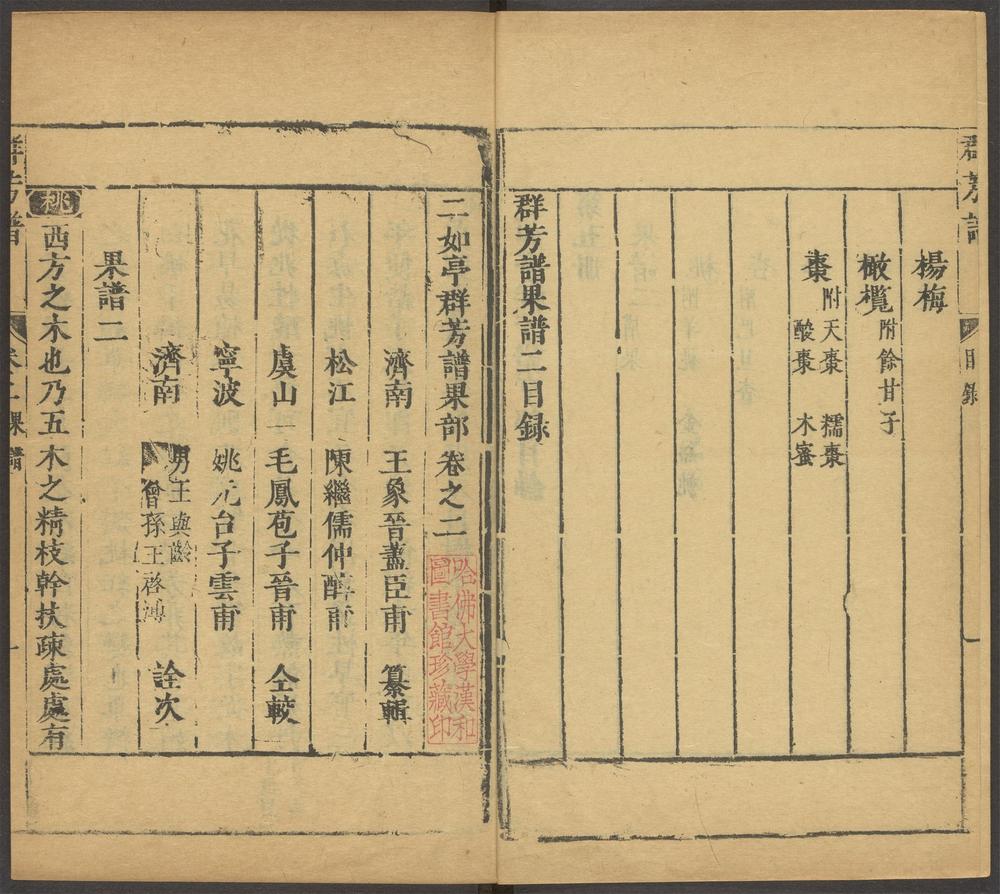 楊梅
橄欖 附餘甘子
棗 附天棗 糯棗
酸棗 木蜜
群芳譜果譜二目錄
群芳譜
目錄
一
二如亭群芳譜果部卷之二
濟南 王象晉藎臣甫 纂輯
松江 陳繼儒仲醇甫
虞山 毛鳳苞子晉甫 仝較
寧波 姚元台子雲甫
濟南 男王與齡
曾孫王啓溥 詮次
果譜二
桃 西方之木也乃五木之精枝幹扶疎處處有
群芳譜
卷二果譜
一
哈佛大學漢和
圖書館珍藏印